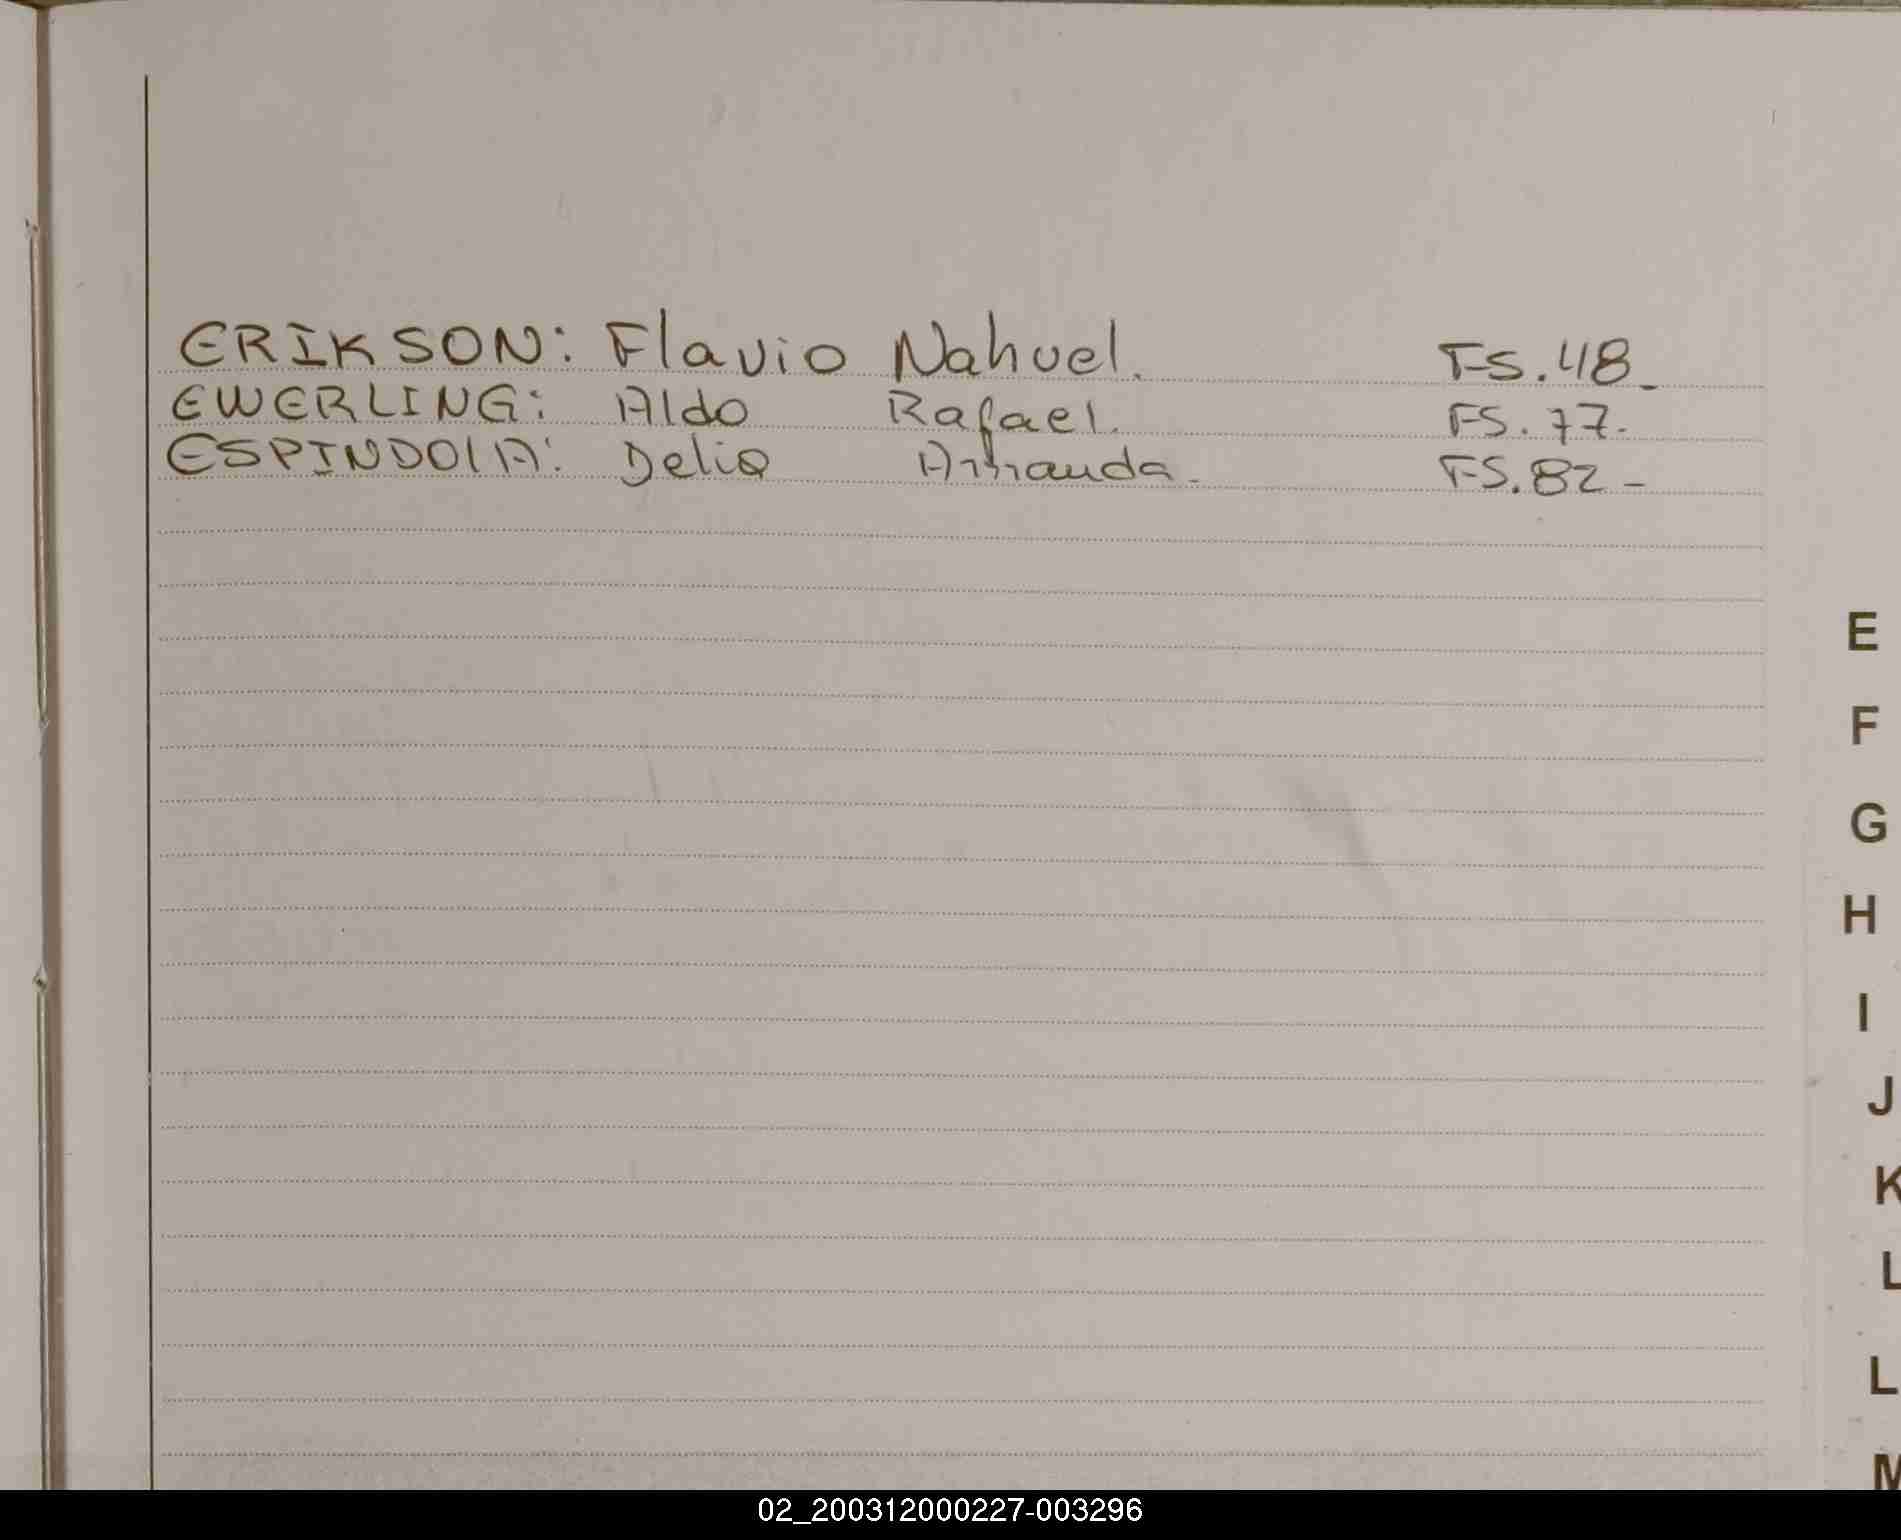 ERIKSON: Flavio Nahuel. FS.48.
EWERLING: Aldo Rafael. FS.77.
ESPINDOlA: Delia Amanda. FS.82-
E
F
G
H
I
J
K
L
L
M
02_200312000227-003296